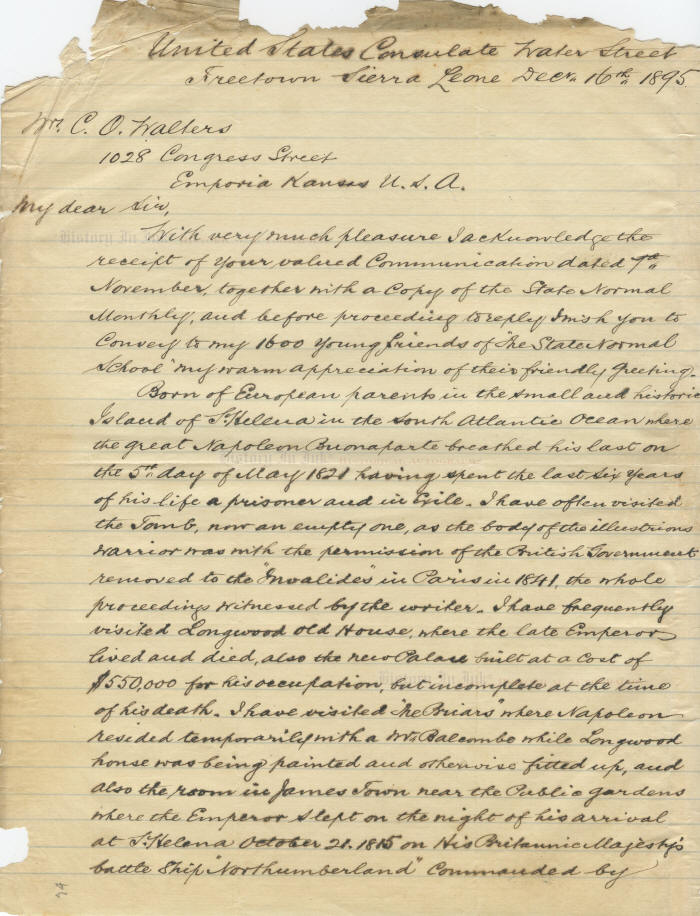 United States Consulate Water Street
Freetown Sierra Leone Decr. 16th 1895
Mr. C. O. Walters
1028 Congress Street
Emporia Kansas U.S.A.
My dear Sir,
With very much pleasure I acknowledge the
receipt of your valued Communication dated 7th
November, together with a Copy of the State Normal
Monthly, and before proceeding to reply I wish you to
Convey to my 1600 Young friends of "The State Normal
School" my warm appreciation of their friendly Greeting.
Born of European parents in the small and historic
Island of St Helena in the South Atlantic Ocean where
the great Napoleon Buonaparte breathed his last on
the 5th day of May 1821 having spent the last six years
of his life a prisoner and in Exile. I have often visited
the Tomb, now an empty one, as the body of the illustrious
warrior was with the permission of the British Government
removed to the "Invalides" in Paris in 1841, the whole
proceedings witnessed by the writer. I have frequently
visited Longwood Old House, where the late Emperor
lived and died, also the new Palace built at a cost of
$550,000 for his occupation, but incomplete at the time
of his death. I have visited "The Briars" where Napoleon
resided temporarily with a Mr Balcombe while Longwood
house was being painted and otherwise fitted up, and
also the room in James Town near the Public gardens
where the Emperor slept on the night of his arrival
at St Helena October 21. 1815 on His Britannic Majesty's
battle Ship "Northumberland" Commanded by